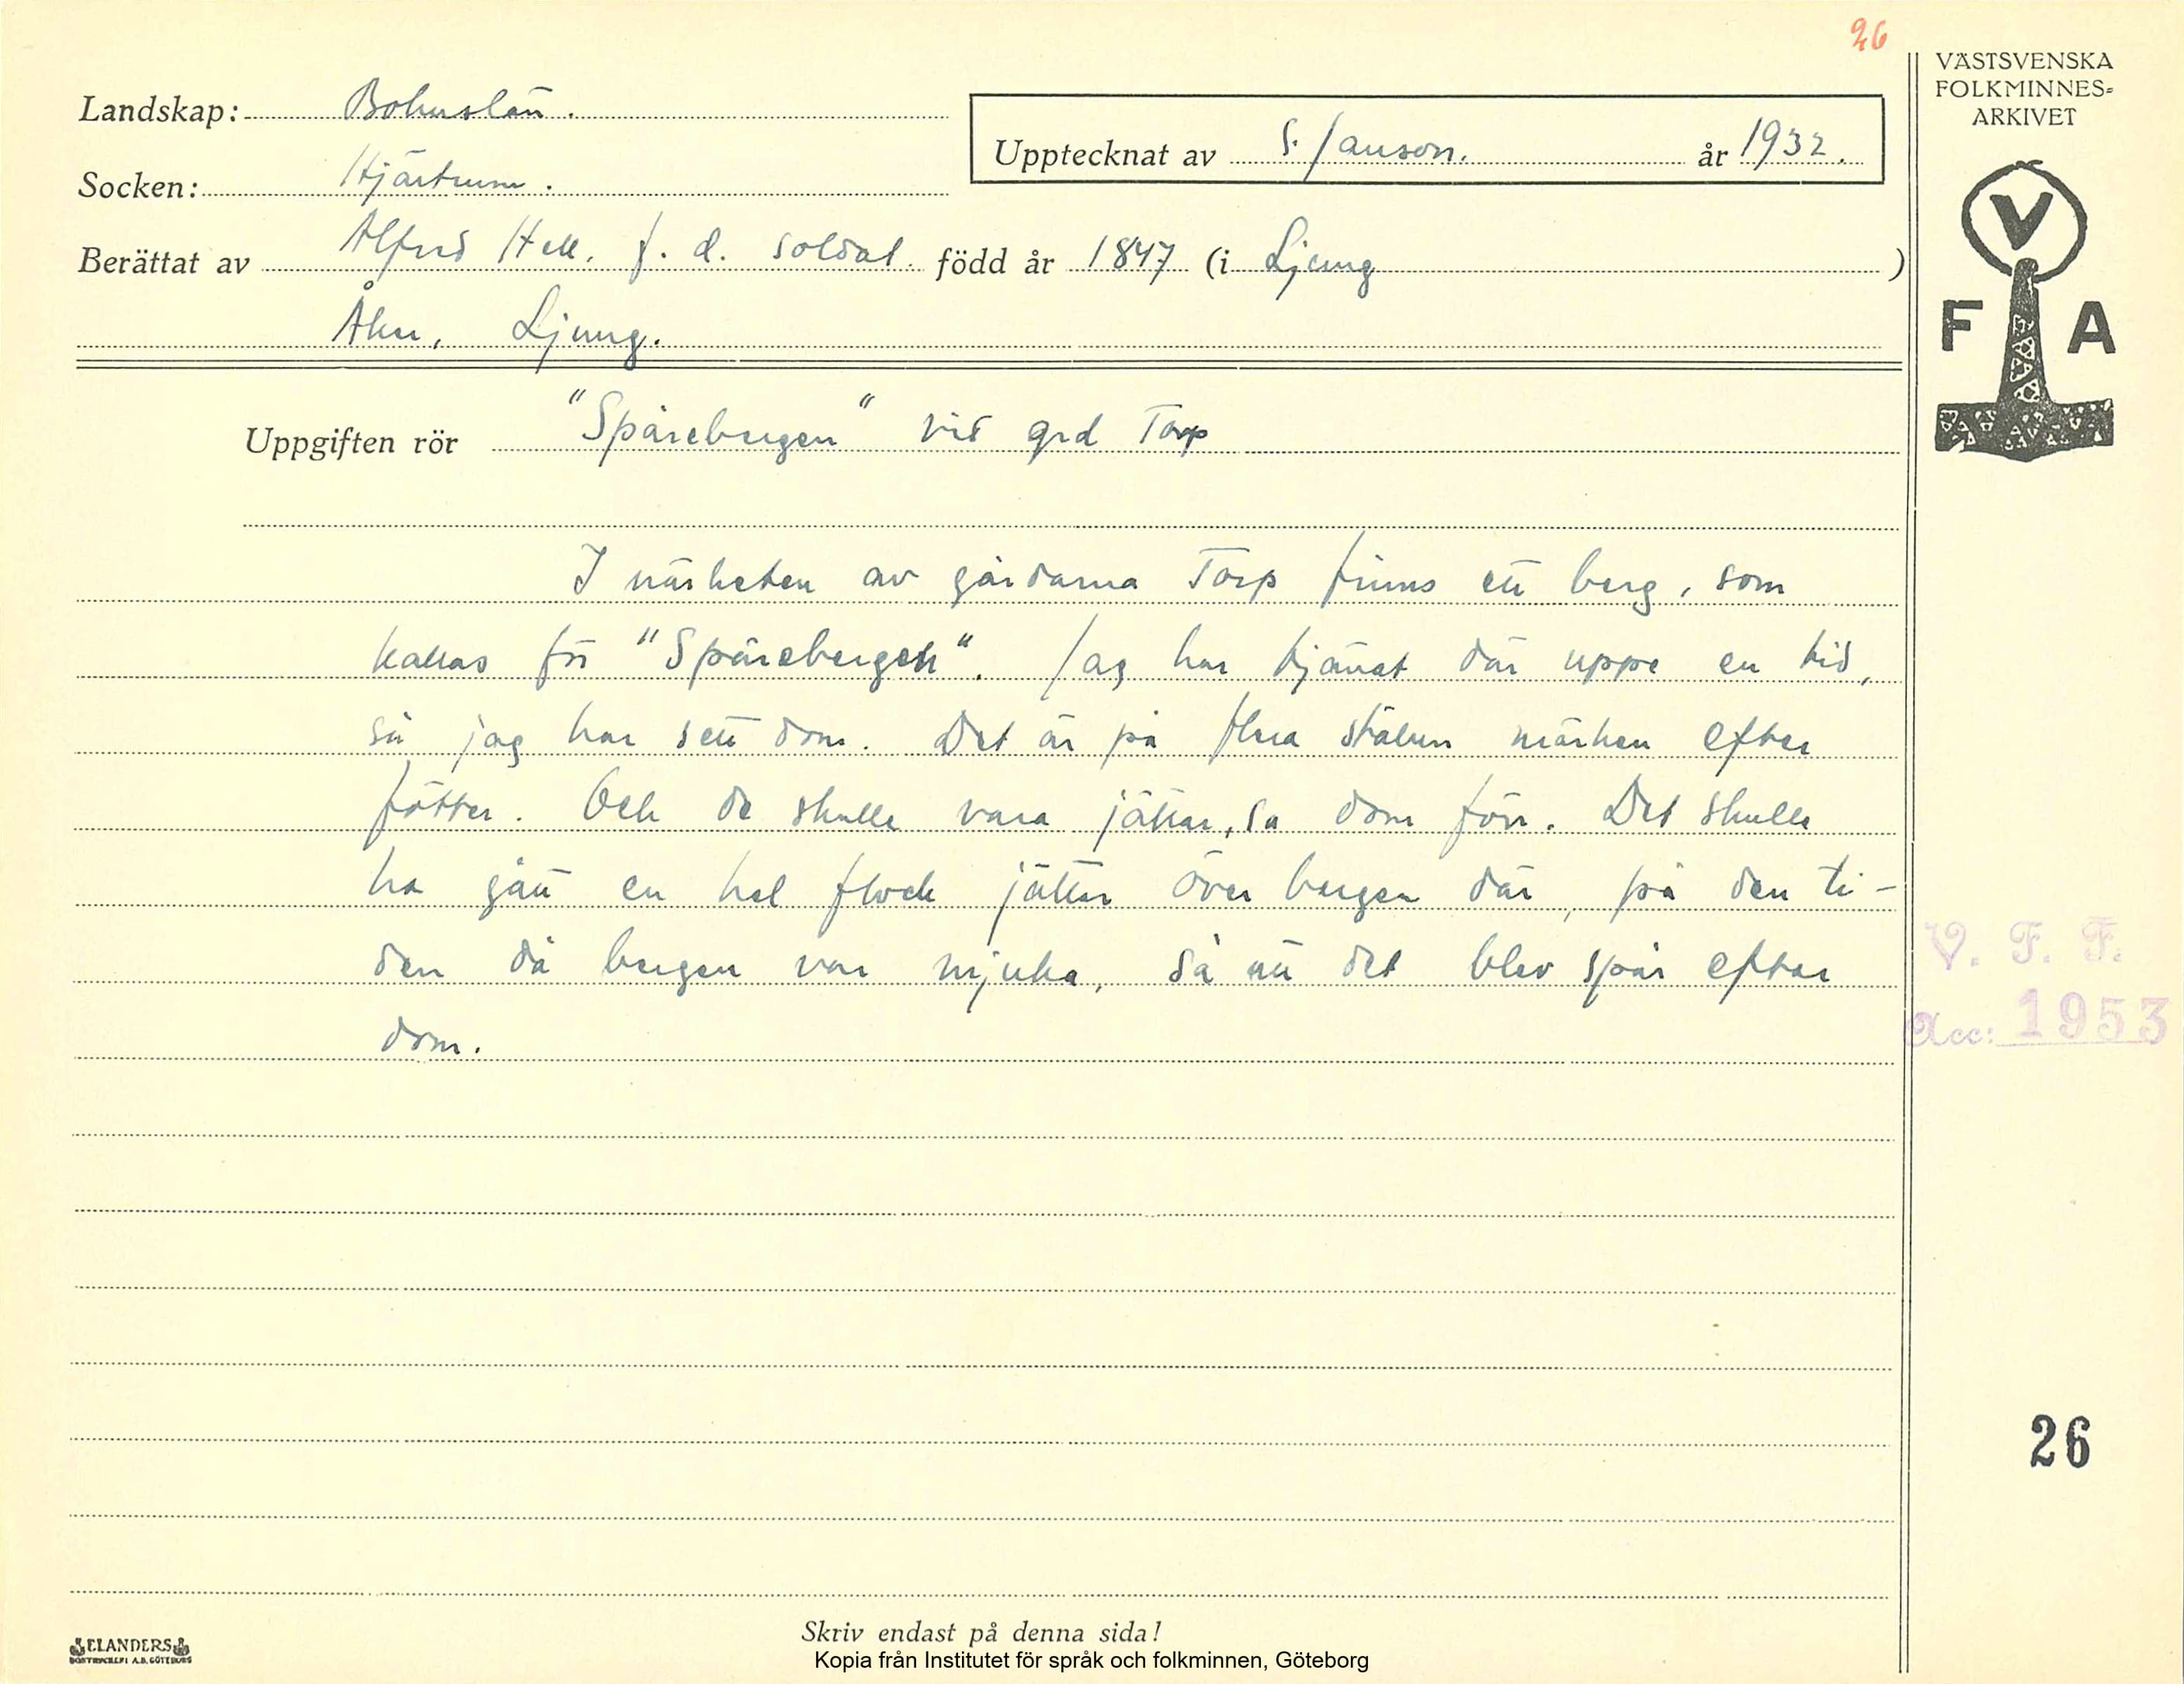 26
VÄSTSVENSKA
FOLKMINNES=
ARKIVET
Landskap: Bohuslän.
Upptecknat av S. Janson. år 1932.
Socken: Hjärtum.
Berättat av Alfred Hell. f. d. soldat. född år 1847 (i Ljung )
Åker, Ljung.
V
F A
Uppgiften rör "Spårebergen" vid grd Torp
I närheten av gårdarna Torp finns ett berg, som
kallas för "Spårebergen". Jag har tjänat där uppe en tid,
så jag har sett dom. Det är på flera ställen märken efter
fötter. Och de skulle vara jättar, sa dom förr. Det skulle
ha gått en hel flock jättar över bergen där, på den ti-
den då bergen var mjuka, så att det blev spår efter
dom.
V. F. F.
Acc: 1953
26
Skriv endast på denna sida!
ELANDERS
BOKTRYCKERI A.B. GÖTEBORG
Kopia från Institutet för språk och folkminnen, Göteborg